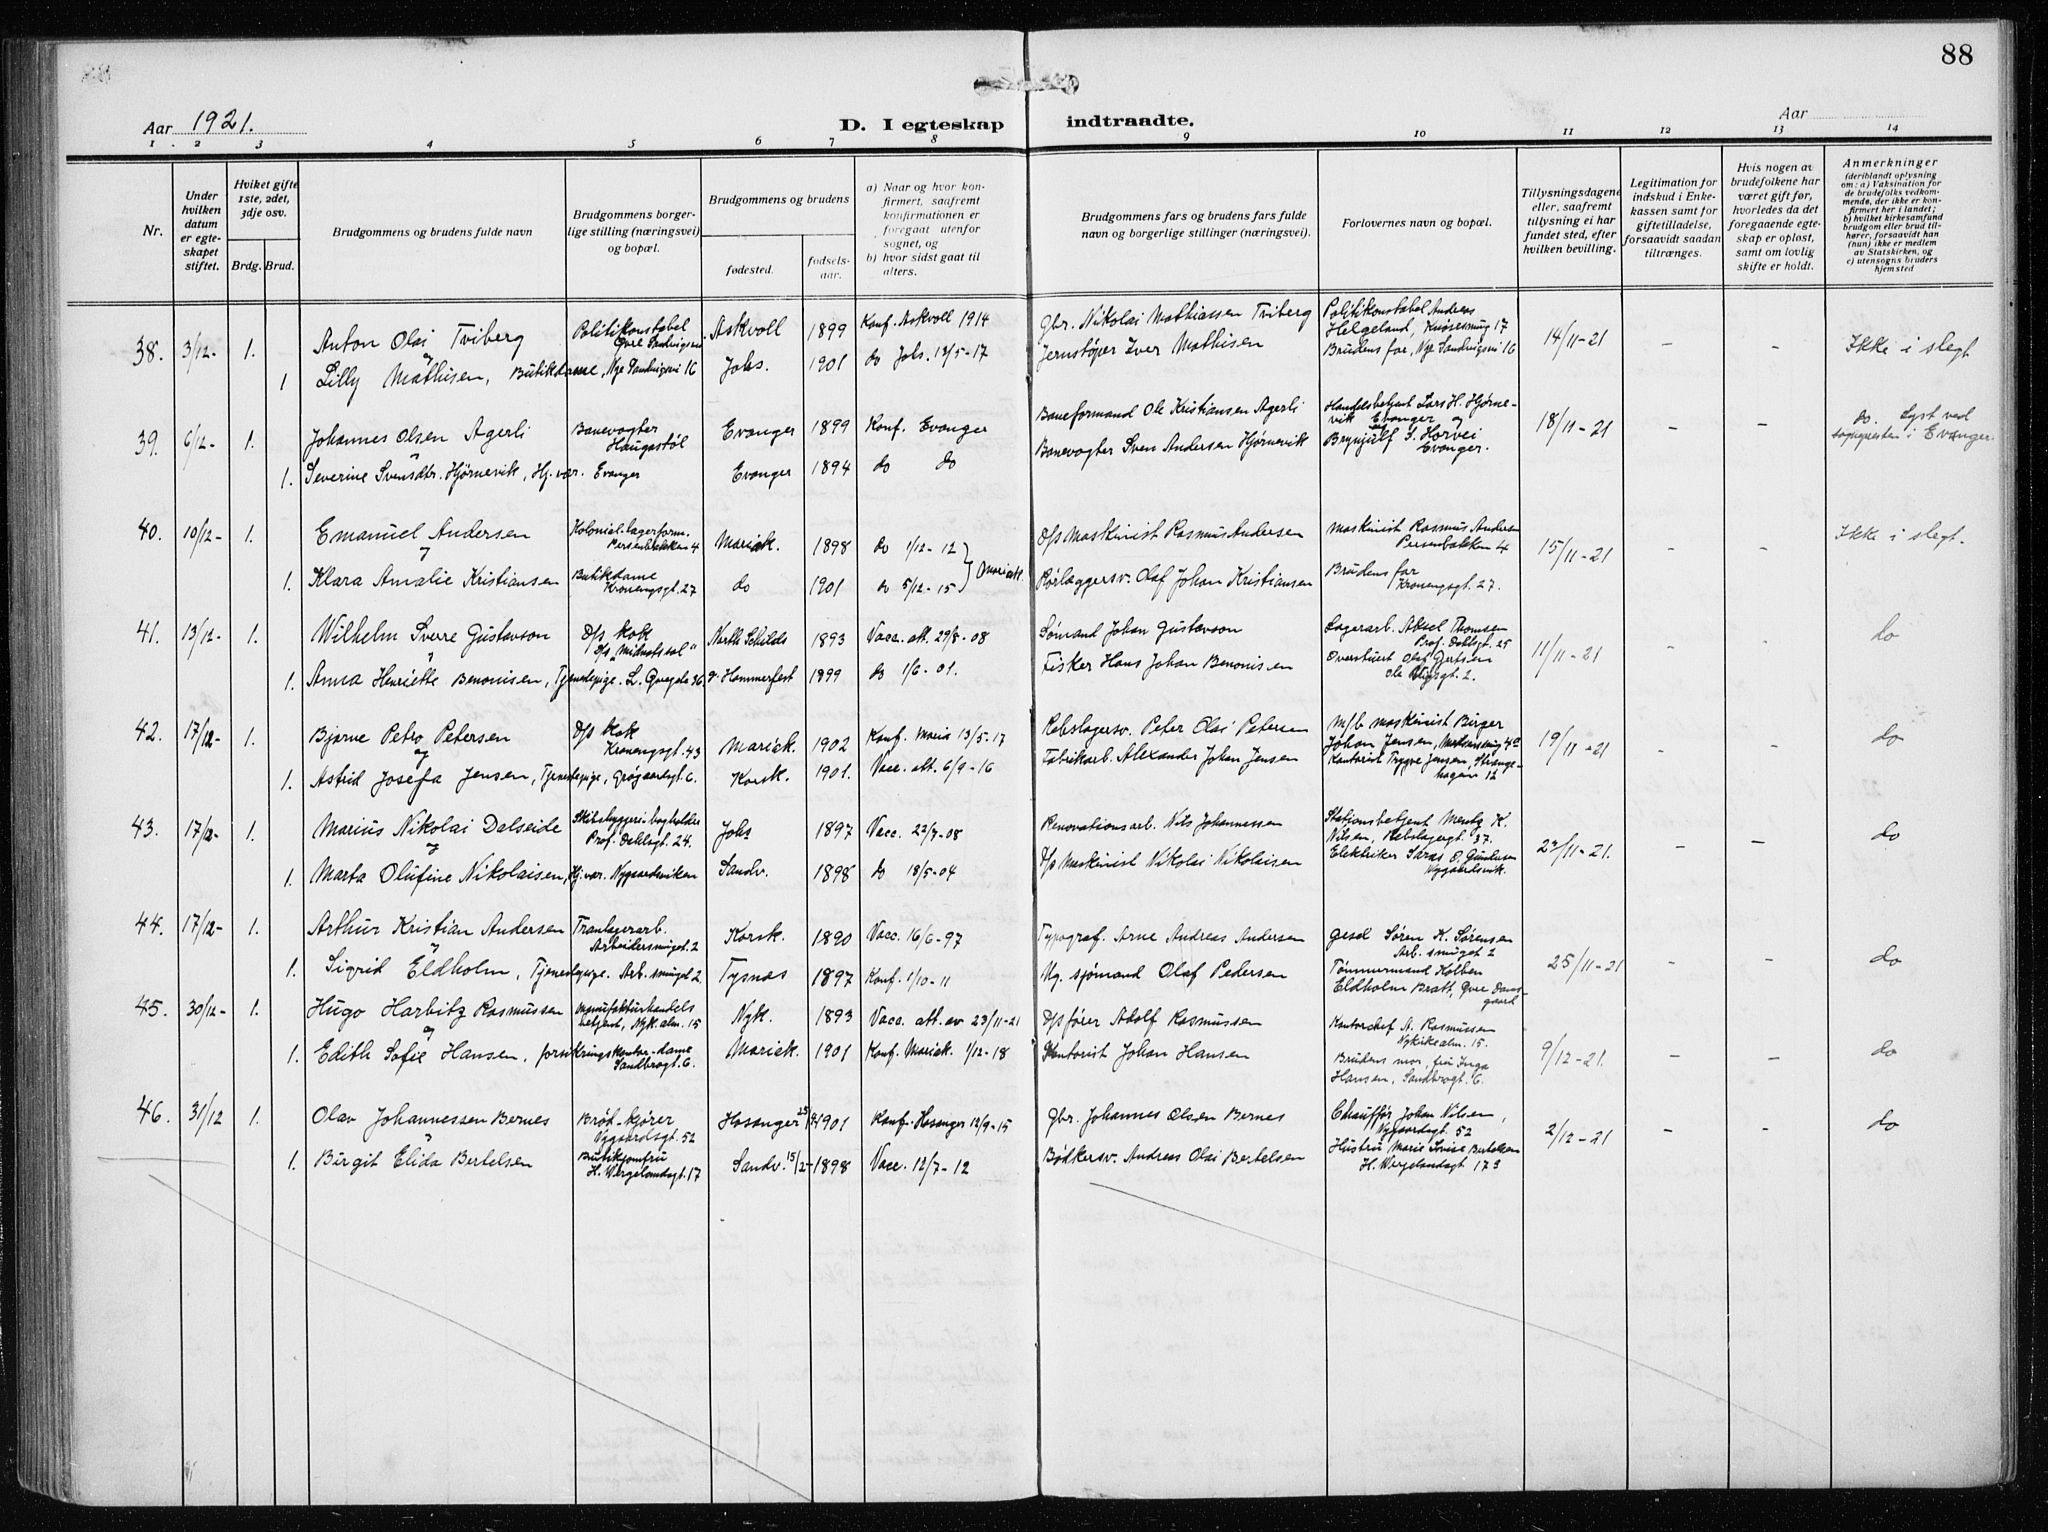 88
Aar 1921.
D. I egteskap indtraadte.
Aar
1 2 3 4 5 6 7 8 9 10 11 12 13 14
Nr.
Under hvilken datum er egteskapet stiftet.
Hviket gifte 1ste, 2det, 3dje osv.
Brdg. Brud.
Brudgommens og brudens fulde navn
Brudgommens borgerlige stilling (næringsvei) og bopæl.
Brudgommens og brudens
fødested. fødselsaar.
a) Naar og hvor konfirmert, saafremt konfirmationen er foregaaet utenfor sognet, og
b) hvor sidst gaat til alters.
Brudgommens fars og brudens fars fulde navn og borgerlige stillinger (næringsvei).
Forlovernes navn og bopæl.
Tillysningsdagene eller, saafremt tillysning ei har fundet sted, efter hvilken bevilling.
Legitimation for indskud i Enkekassen samt for giftetilladelse, forsaavidt saadan tiltrænges.
Hvis nogen av brudefolkene har været gift før, hvorledes da det foregaaende egteskap er opløst, samt om lovlig skifte er holdt.
Anmerkninger (deriblandt oplysning om: a) Vaksination for de brudefolks vedkommende, der ikke er konfirmert her i landet; b) hvilket kirkesamfund brudgom eller brud tilhører, forsaavidt han (hun) ikke er medlem av Statskirken, og c) utensogns bruders hjemsted
38. 3/12- 1. Anton Olai Tviberg Politikonstabel Øvre Sandvigsvei Askvoll 1899 Konf. Askvoll 1914 Gbr. Nikolai Mathiassen Tviberg Politikonstabel Andreas Helgeland, Knøsesmug 17 14/11-21 - - Ikke i slegt
og
1 Lilly Mathisen, Butikdame, Nye Sandvigsvei 16 Johs. 1901 do Johs. 13/5-17 Jernstøper Iver Mathisen Brudens far, Nye Sandvigsvei 16
39. 6/12- 1. Johannes Olsen Agerli Banevogter Haugastøl Evanger 1899 Konf. Evanger Baneformand Ole Kristiansen Agerli Handelsbetjent Lars H. Hjørnevik Evanger og 18/11-21 - - do. Lyst ved sognepresten i Evanger.
og
1. Severine Svensdtr. Hjørnevik, Hj. vær. Evanger Evanger 1894 do do Banevogter Sven Andersen Hjørnevik Brynjulf S. Horvei Evanger.
40. 10/12- 1. Emanuel Andersen Kolonial-lagerform. Persenbakken 4 Mariek. 1898 do 1/12-12 D/s Maskinist Rasmus Andersen Maskinist Rasmus Andersen Persenbakken 4 15/11-21 - - Ikke i slegt.
og
1. Klara Amalie Kristiansen Butikdame Kroneng­sgt. 27 do 1901 do 5/12-15 Mariek. Rørlæggersv. Olaf Johan Kristiansen Brudens far Krone­ngsgt. 27.
41. 13/12- 1. Wilhelm Sverre Gustavson D/s kok D/s "Midnatssol" North Schilds 1893 Vacc. att. 29/8-08 Sømand Johan Gustavson Lagerarb. Aksel Thomsen Prof. Dahlsgt. 25 11/11-21 - - do
og
1. Anna Henriette Benonisen, Tjenestepige. Hammerfest 1899 do 1/6-01. Fisker Hans Johan Benonisen Overstuert Olaf Gertsen Ole Viigsgt. 2.
42. 17/12- 1. Bjarne Petro Petersen D/s Kok Kroneng­sgt. 43 Mariek. 1902 Konf. Maria 13/5-17 Rebslagersv. Peter Olai Petersen M/b maskinist Birger Johan Jensen, 19/11-21 - - do
og
1. Astrid Josefa Jensen, Tjenestepige, Grøgaardsgt. 6. Korsk. 1901. Vacc. att. 6/9-16 Fabrikarb. Alexander Johan Jensen Kontorist Trygve Jensen, Strangehagen 12
43. 17/12- 1. Marius Nikolai Dalseide Skibsbyggeri-bogholder Prof. Dahlsgt. 24. Johs 1897 Vacc. 22/7-08 Renovationsarb. Nils Johannessen Stationsbetjent Mentz K. Nilsen, Rebslagergt 37. 22/11-21. - - do
og
1. Marta Olufine Nikolaisen, Hj. vær. Nygaardsviken Sandv. 1898 do 18/5-04 D/s Maskinist Nikolai Nikolaisen Elektriker Nygaardsvik.
44. 17/12- 1. Arthur Kristian Andersen Tranlagerarb. Arbeidersmuget 2 Korsk. 1890 Vacc. 16/6-97 Typograf. Arne Andreas Andersen Gesel Søren K. Sørensen Arb. smuget 2 25/11-21 - - do
og
1. Sigrid Eldholm, Tjenestepige. Arb. smuget 2. Tysnæs 1897 Konf. 1/10-11 Ug. sjømand Olaf Pedersen Tømmermand Kolben Eldholm Bratt, Øvre Damsgaard
45. 30/12- 1. Hugo Harbitz Rasmussen Manufakturhandelsbetjent, Nyk. alm. 15 Nyk. 1893 Vacc. att. av 23/11-21 D/s fører Adolf Rasmussen Kontorchef A. Rasmussen Nykirkealm. 15. 9/12-21. - - do
og
1. Edith Sofie Hansen, forsikringskontor-dame Sandbrogt. 6. Mariek. 1901 Konf. Mariek. 1/12-18 Kontorist Johan Hansen Brudens mor, fru Inga Hansen, Sandbrogt. 6.
46. 31/12 1. Olav Johannessen Bernes Brød-kjører Nygaardsgt. 52 Hosanger 1901 Konf. Hosanger 12/9-15 Gbr. Johannes Olsen Bernes Chauffør Johan Nilsen, Nygaardsgt 52 2/12-21 - - do
og
1. Birgit Elida Bertelsen Butikjomfru H. Wergelandsgt. 17 Sandv. 15/2- 1898 Vacc. 12/7-12 Bødkersv. Andreas Olai Bertelsen Hustru Marie Louise Bertelsen H. Wergelandsgt 17